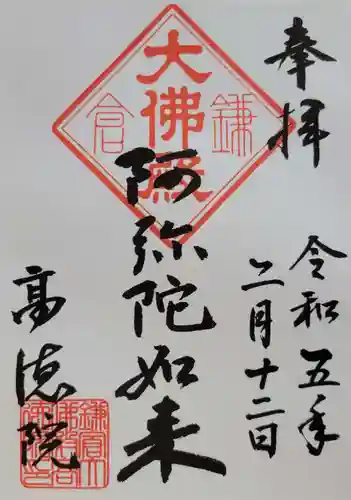 奉拝
令和五年
二月十二日
鎌倉
大佛殿
阿弥陀如来
高徳院